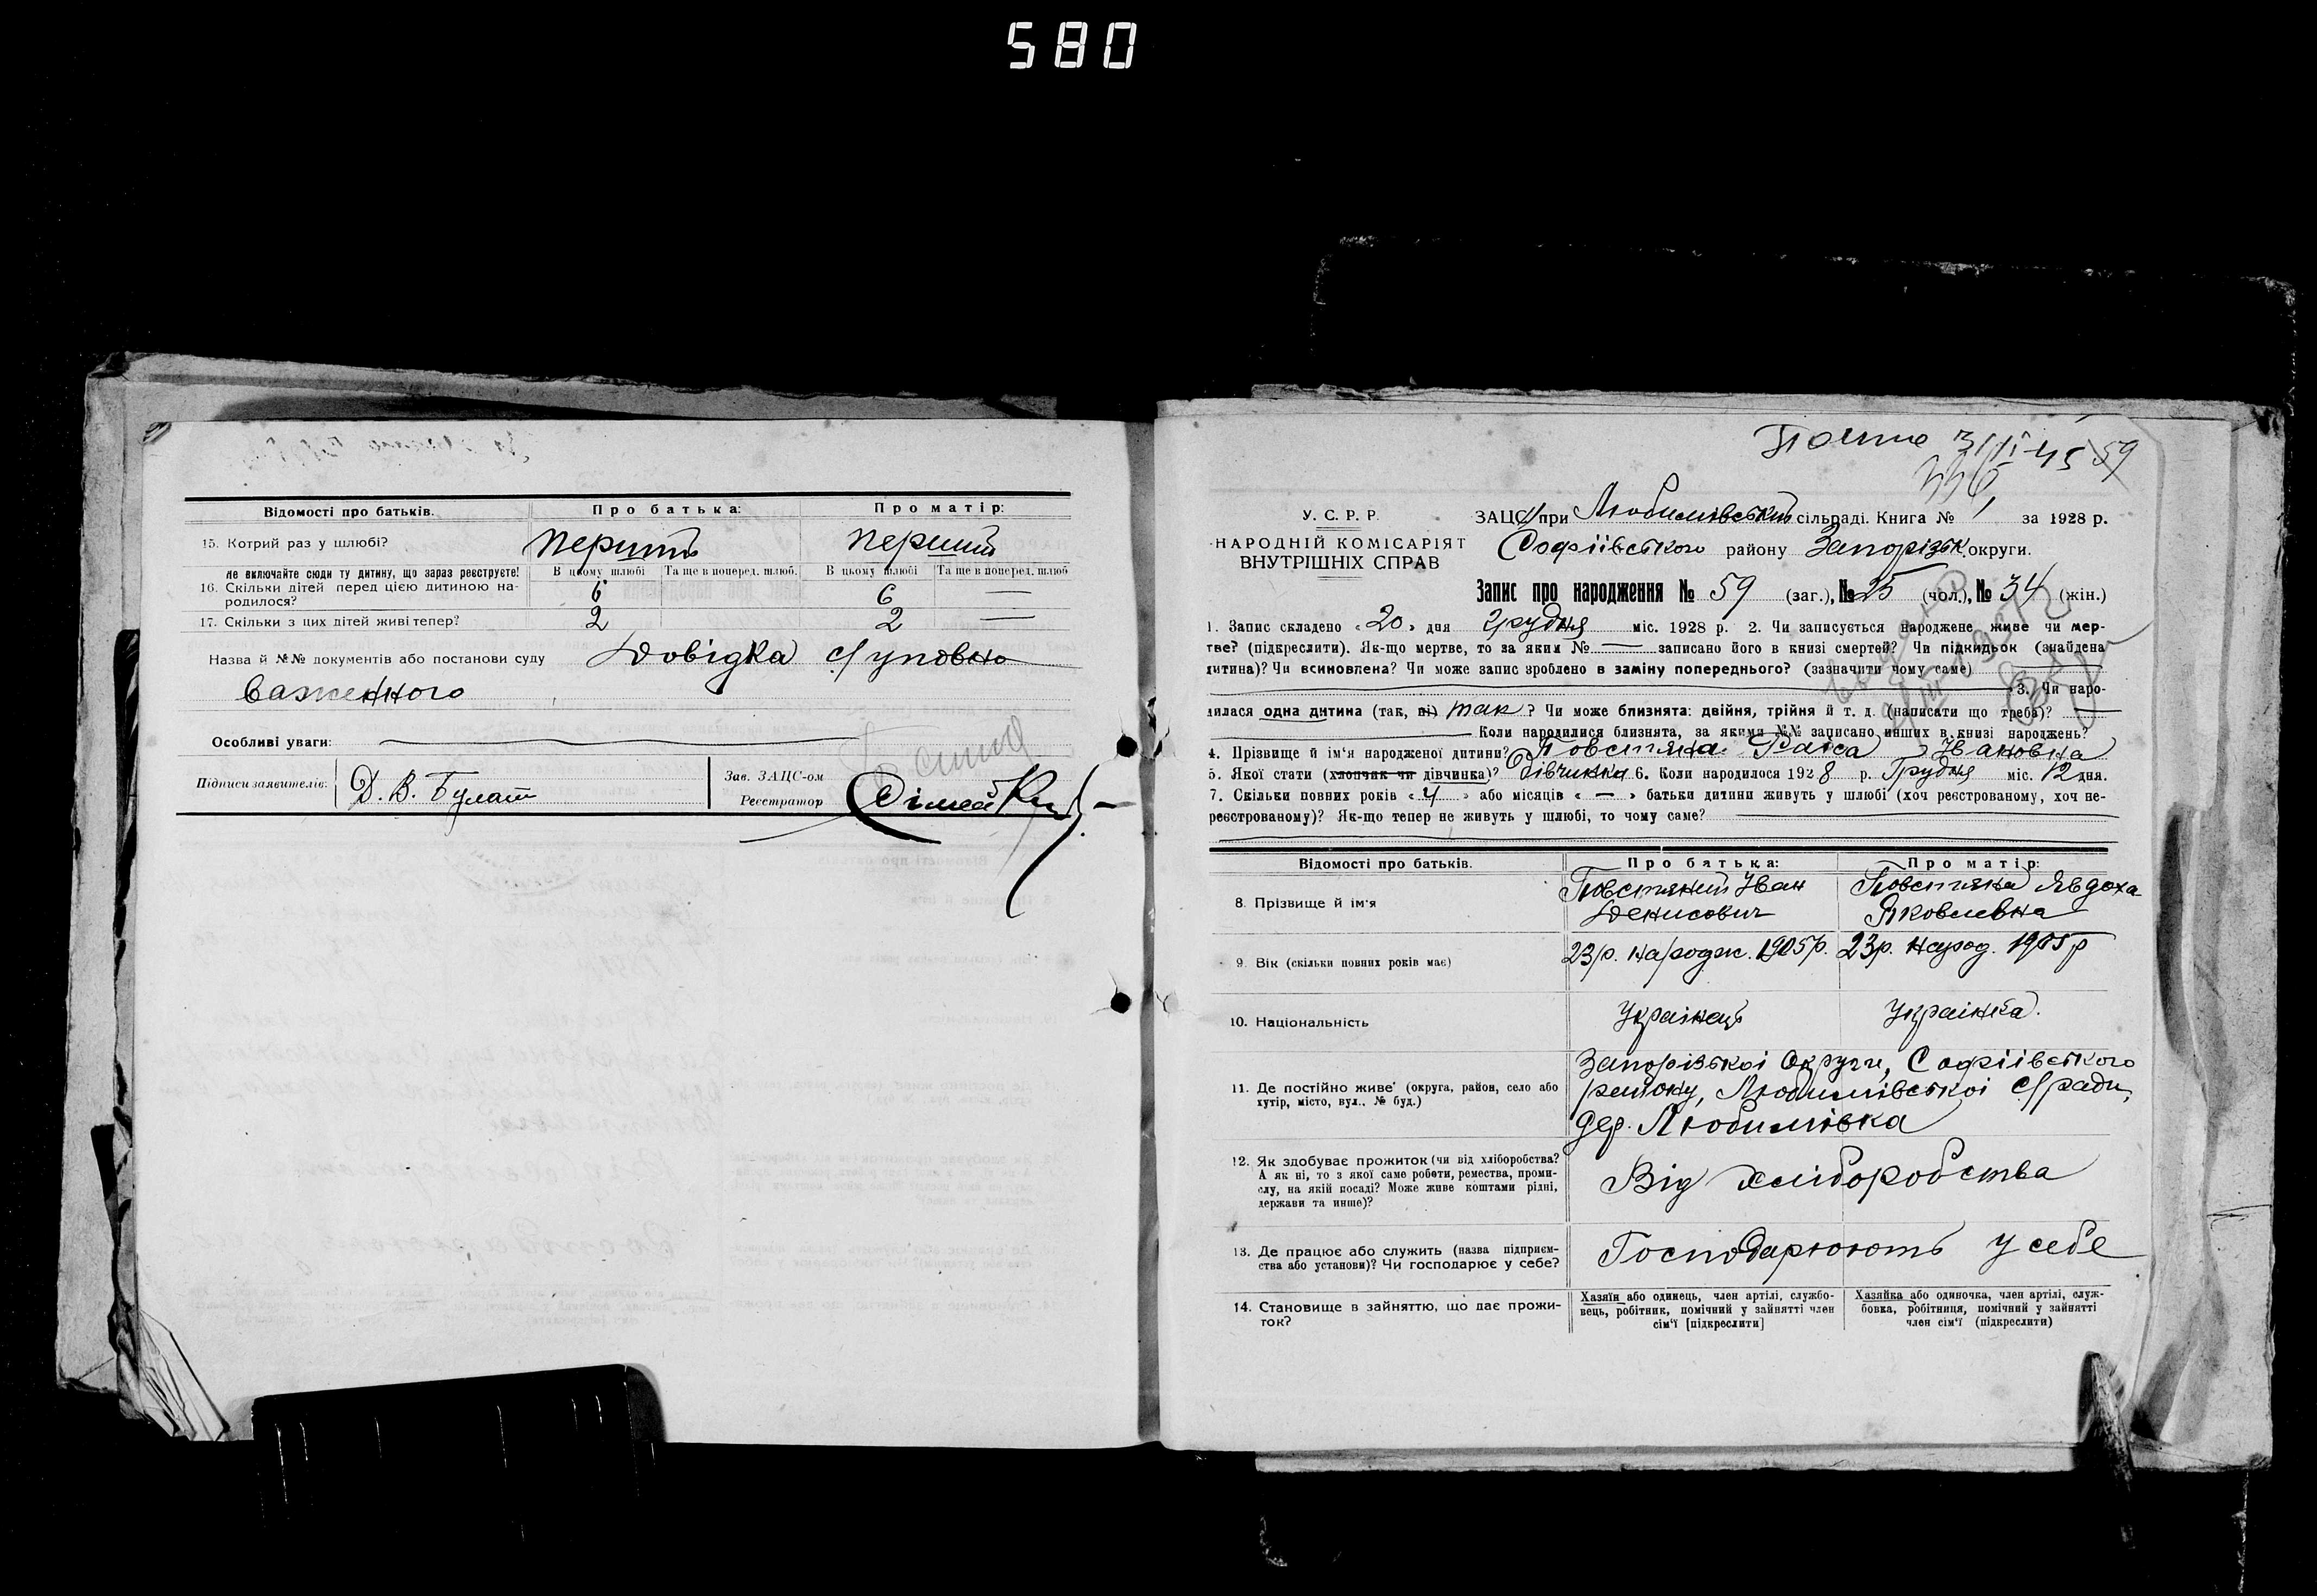 580
Відомості про батьків. Про батька: Про матір:
15. Котрий раз у шлюбі? перший перший
Не включайте сюди ту дитину, що зараз реєструєте! В цьому шлюбі Та ще в поперед. шлюб. В цьому шлюбі Та ще в поперед. шлюб
16. Скільки дітей перед цією дитиною на- 6 6 —
родилося?
17. Скільки з цих дітей живі тепер? 2 2 —
Назва й №№ документів або постанови суду Довідка с/уповно
важенного
Особливі уваги: —
Підписи заявителів: Д. В. Булат Зав. ЗАЦС-ом
Реєстратор
31/
59
У. С. Р. Р. ЗАЦС при Любимівській сільраді. Книга № 1 за 1928 р.
НАРОДНІЙ КОМІСАРІЯТ Софіївського району Запорізьк. округи.
ВНУТРІШНІХ СПРАВ
Запис про народження № 59 (заг.), № 25 (чол.), № 34 (жін.)
1. Запис складено «20» дня Грудня міс. 1928 р. 2. Чи записується народжене живе чи мер-
тве? (підкреслити). Як-що мертве, то за яким № — записано його в книзі смертей? Чи підкидьок (знайдена
дитина)? Чи всиновлена? Чи може запис зроблено в заміну попереднього? (зазначити чому саме)
3. Чи наро-
дилася одна дитина (так, ні) так ? Чи може близнята: двійня, трійня й т. д. (написати що треба)? —
Коли народилися близнята, за якими №№ записано инших в книзі народжень?
4. Прізвище й ім'я народженої дитини? Повстяна Раїса Івановна
5. Якої стати (хлопчик чи дівчинка)? дівчинка 6. Коли народилося 1928 р. Грудня міс. 12 дня.
7. Скільки повних років «4» або місяців «—» батьки дитини живуть у шлюбі (хоч реєстрованому, хоч не-
реєстрованому)? Як-що тепер не живуть у шлюбі, то чому саме?
Відомості про батьків. Про батька: Про матір:
8. Прізвище й ім'я Повстяний Іван Повстяна Явдоха
Денисович Яковлевна
9. Вік (скільки повних років має) 23р. народж. 1905р. 23р. народ. 1905р
10. Національність Українець Українка.
11. Де постійно живе (округа, район, село або Запорізькоі Округи, Софіівського
хутір, місто, вул.. № буд.) району, Любимівськоі с/ради,
дер. Любимівка
12. Як здобуває прожиток (чи від хліборобства?
А як ні, то з якої саме роботи, ремества, проми- Від хліборобства
слу, на якій посаді? Може живе коштами рідні,
держави та инше)?
13. Де працює або служить (назва підприєм- Господарюють у себе
ства або установи)? Чи господарює у себе?
14. Становище в зайняттю, що дає прожи- Хазяїн або одинець, член артілі, службо- Хазяйка або одиночка, член артілі, служ-
ток? вець, робітник, помічний у зайнятті член бовка, робітниця, помічний у зайнятті
сім'ї [підкреслити] член сім'ї (підкреслити)